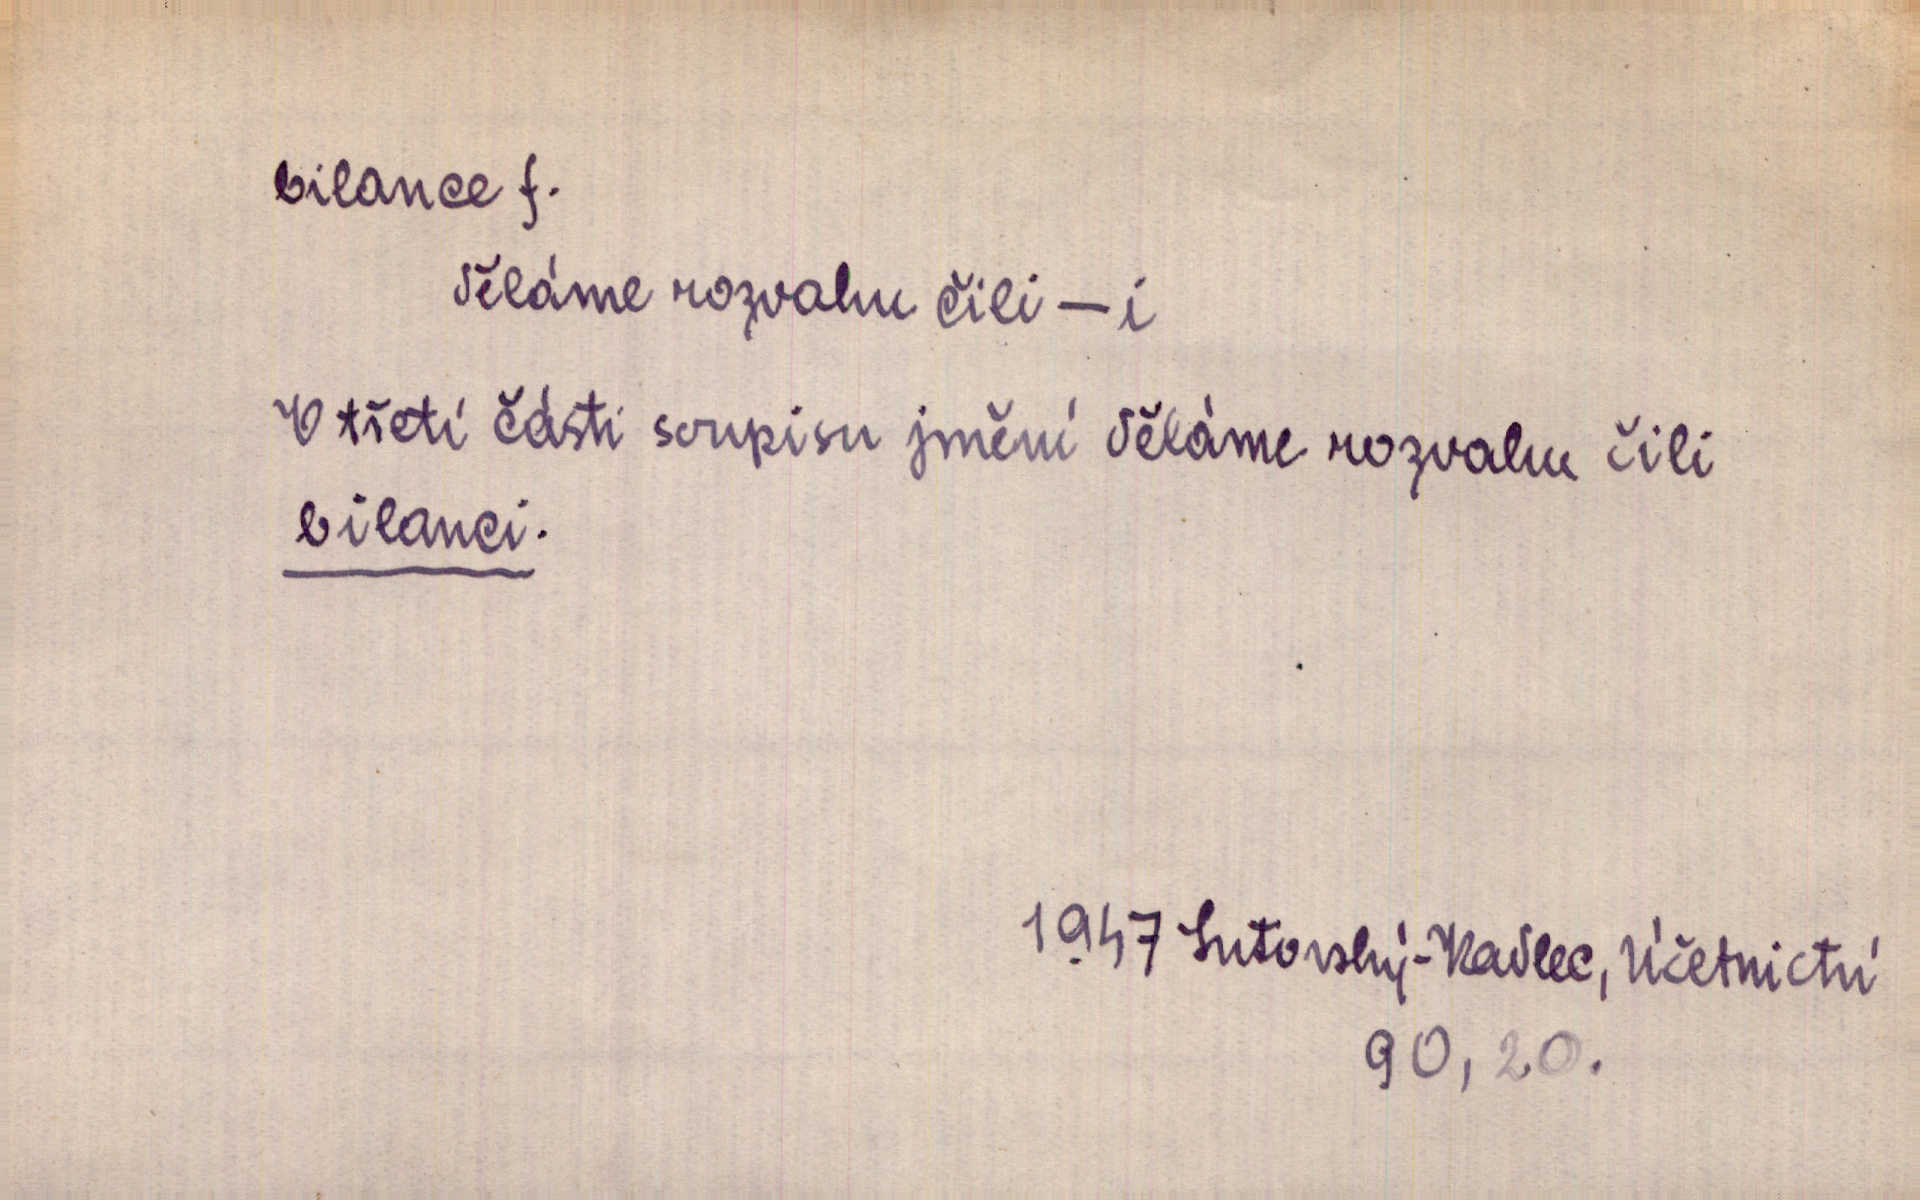 bilance f.
děláme rozvahu čili – i
V třetí části soupisu jmění děláme rozvahu čili
bilanci.
1947 Lutovský-Kadlec, Účetnictví
90, 20.